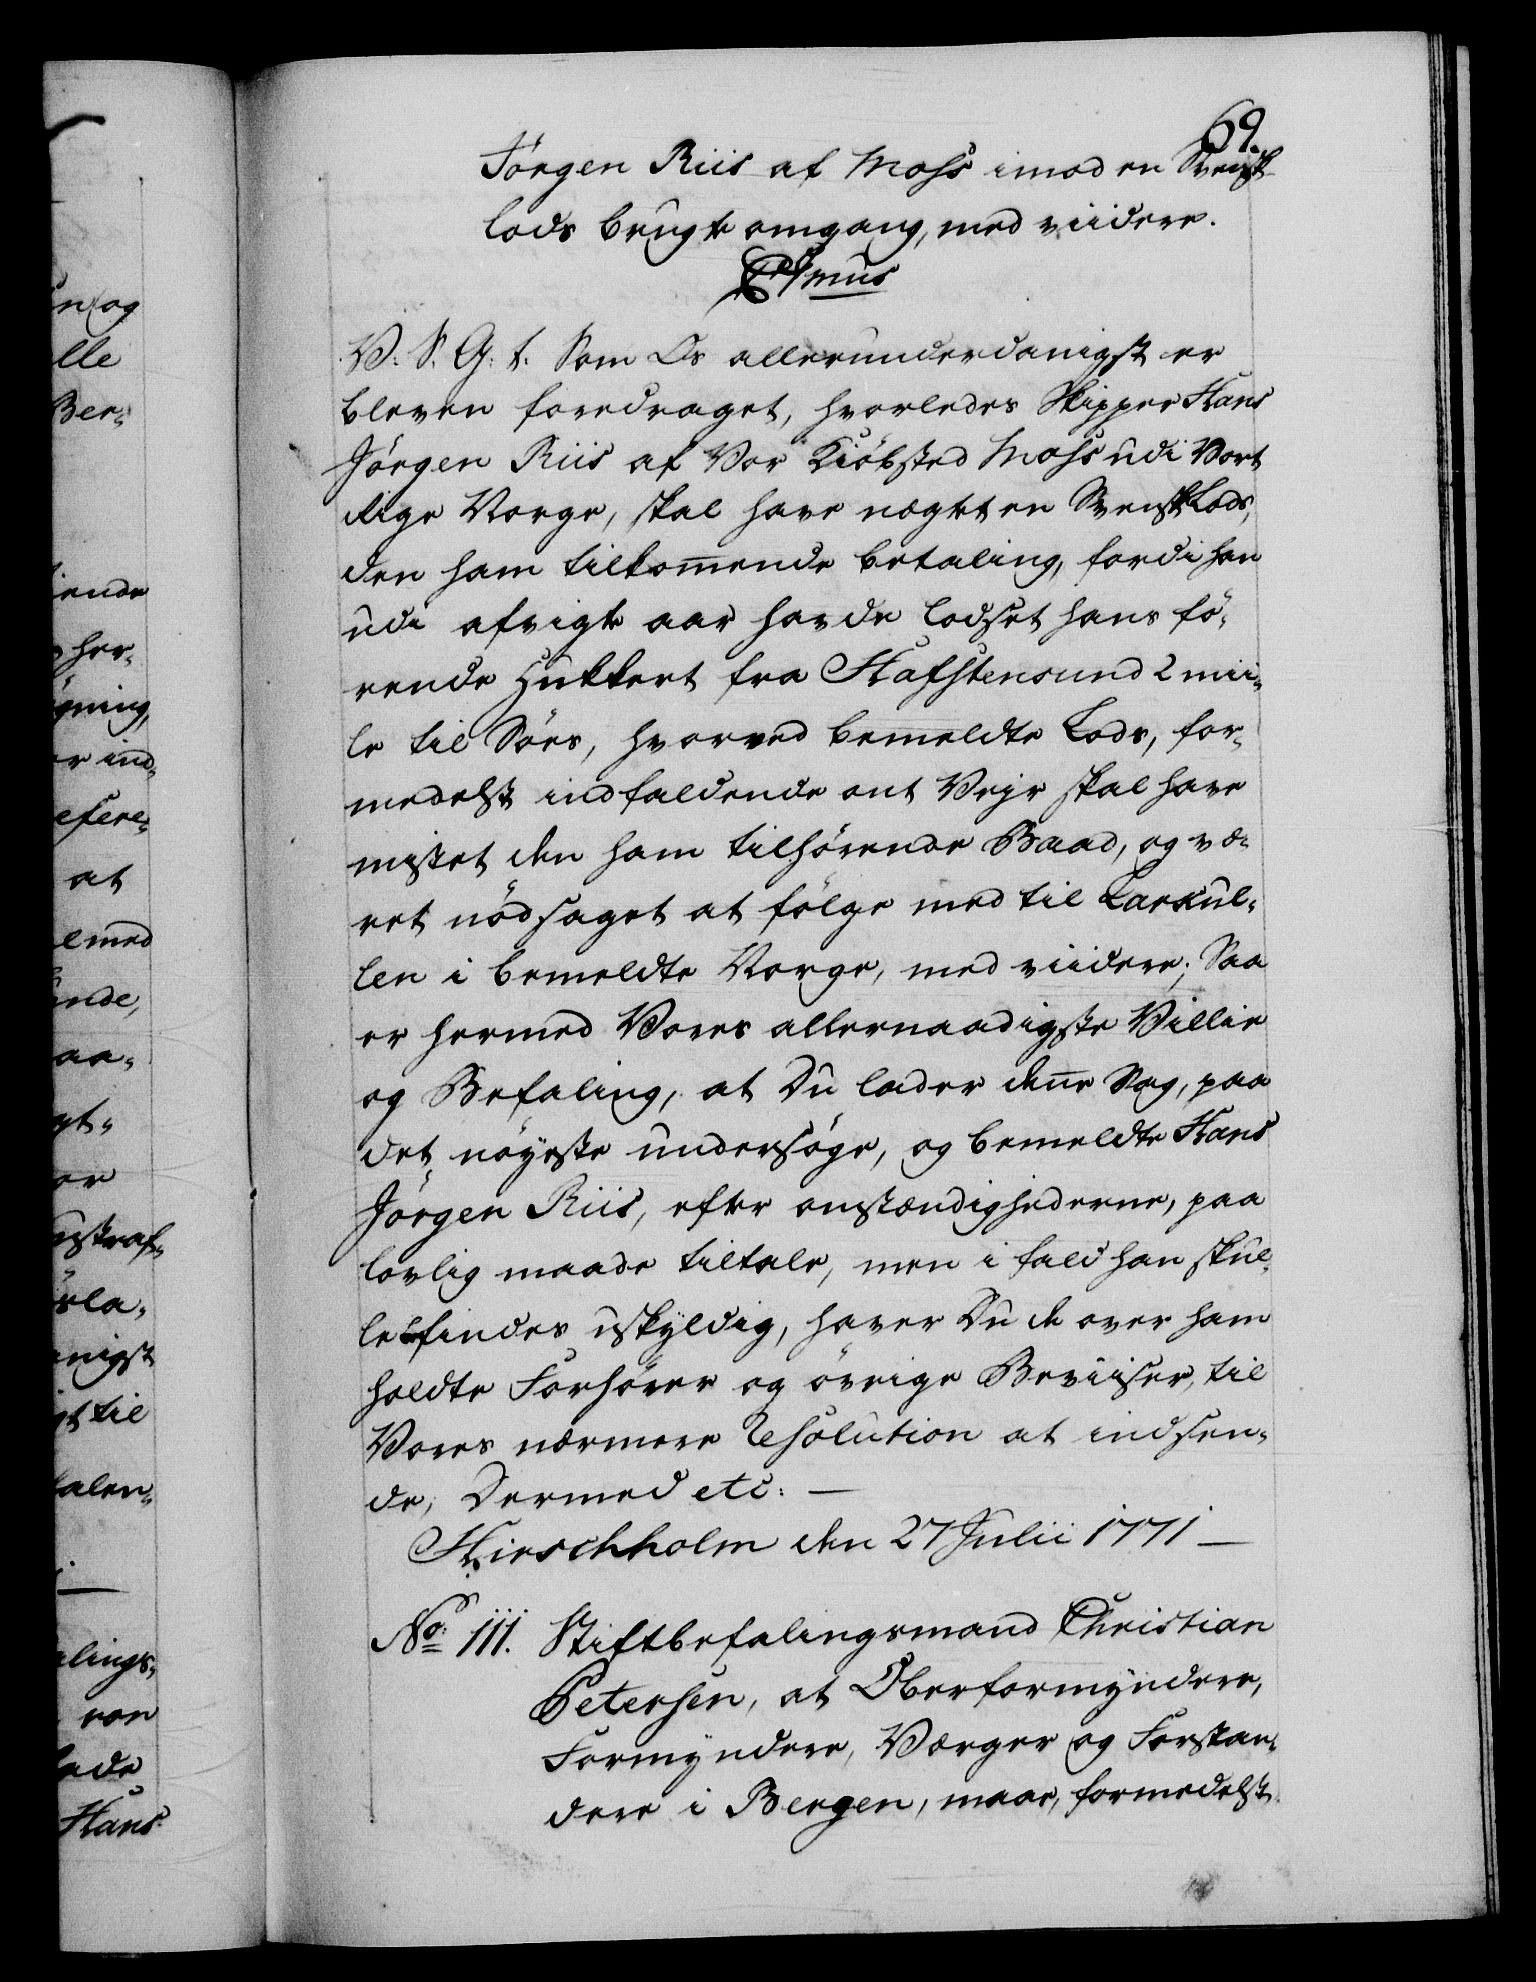 69.
Jörgen Riis af Moss imod en Svensk
Lods brugte omgang, med viidere.
Cmus
V. S. G. t. Som Os allerunderdanigst er
bleven foredraget, hvorledes Skipper Hans
Jörgen Riis af Vor Kiöbsted Moss udi Vort
Rige Norge, skal have nægtet en Svensk Lods,
den ham tilkom̄ende betaling, fordi han
udi afvigte aar havde lodset hans fö-
rende Hukkert fra Hafstensund 2 mii-
le til Söes, hvorved bemeldte Lods, for-
medelst indfaldende ont Vejr skal have
mistet den ham tilhörende Baad, og væ-
ret nödsaget at fölge med til Larkul-
len i bemeldte Norge, med viidere; Saa
er hermed Vores allernaadigste Villie
og Befaling, at Du lader den̄e Sag, paa
det nöyeste undersöge, og bemeldte Hans
Jörgen Riis, efter omstændighederne, paa
lovlig maade tiltale, men i fald han skul-
le befindes uskyldig, haver Du de over ham
holdte Forhörer og övrige Beviiser, til
Vores nærmere Resolution at indsen-
de, Dermed etc: —
Hirschholm den 27 Julii 1771 —
No: 111. Stiftbefalingsmand Christian
Petersen, at Oberformyndere,
Formyndere, Værger og Forstan-
dere i Bergen, maae, formedelst
n og
lle
Ber-
iende
her-
gning,
er ind-
efere-
at
el med
ende,
aa-
gt-
or
nskraf-
rla-
anigst
gt til
falen-
alings-
von
lade
Hans